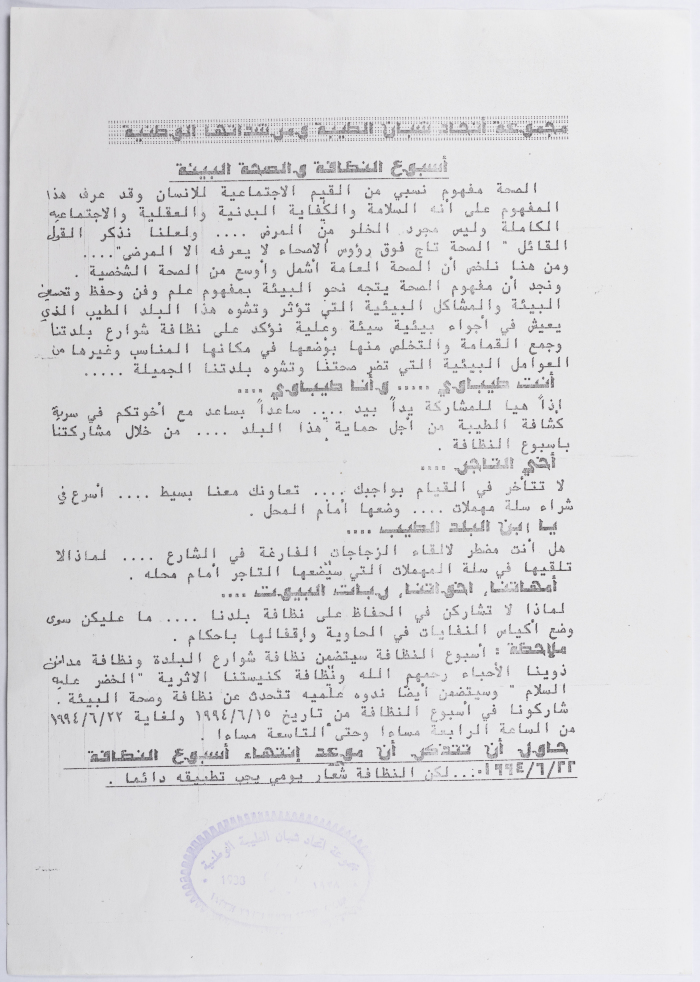 مجموعة أتحاد شبان الطيبة ومرشداتها الوطنية
أسبوع النظافة والصحة البيئة
الصحة مفهوم نسبي من القيم الاجتماعية للانسان وقد عرف هذا
المفهوم على أنه السلامة والكفاية البدنية والعقلية والاجتماعيه
الكاملة وليس مجرد الخلو من المرض .... ولعلنا نذكر القول
القائل " الصحة تاج فوق رؤوس الأصحاء لا يعرفه الا المرضى"....
ومن هنا نلخص أن الصحة العامة أشمل وأوسع من الصحة الشخصية .
ونجد أن مفهوم الصحة يتجه نحو البيئة بمفهوم علم وفن وحفظ وتحسين
البيئة والمشاكل البيئية التي تؤثر وتشوه هذا البلد الطيب الذي
يعيش في أجواء بيئية سيئة وعلية نؤكد على نظافة شوارع بلدتنا
وجمع القمامة والتخلص منها بوضعها في مكانها المناسب وغيرها من
العوامل البيئية التي تضر صحتنا وتشوه بلدتنا الجميلة .....
أنت طيباوي ..... وأنا طيباوي ....
إذاً هيا للمشاركة يداً بيد .... ساعداً بساعد مع أخوتكم في سرية
كشافة الطيبة من أجل حماية هذا البلد .... من خلال مشاركتنا
باسبوع النظافة .
أخي التاجر ....
لا تتأخر في القيام بواجبك .... تعاونك معنا بسيط .... أسرع في
شراء سلة مهملات .... وضعها أمام المحل .
يا ابن البلد الطيب ....
هل أنت مضطر لالقاء الزجاجات الفارغة في الشارع .... لماذالا
تلقيها في سلة المهملات التي سيضعها التاجر أمام محله .
أمهاتنا، اخواتنا، ربات البيوت ....
لماذا لا تشاركن في الحفاظ على نظافة بلدنا .... ما عليكن سوى
وضع أكياس النفايات في الحاوية وإقفالها باحكام .
ملاحظة : أسبوع النظافة سيتضمن نظافة شوارع البلدة ونظافة مدافن
ذوينا الأحباء رحمهم الله ونظافة كنيستنا الاثرية "الخضر عليه
السلام " وسيتضمن أيضا ندوه علميه تتحدث عن نظافة وصحة البيئة .
شاركونا في أسبوع النظافة من تاريخ ١٩٩٤/٦/١٥ ولغاية ١٩٩٤/٦/٢٢
من الساعة الرابعة مساءا وحتى التاسعة مساءا .
حاول أن تتذكر أن موعد إنتهاء أسبوع النظافة
١٩٩٤/٦/٢٢....لكن النظافة شعار يومي يجب تطبيقه دائما .
مجموعة اتحاد شبان الطيبة الوطنية